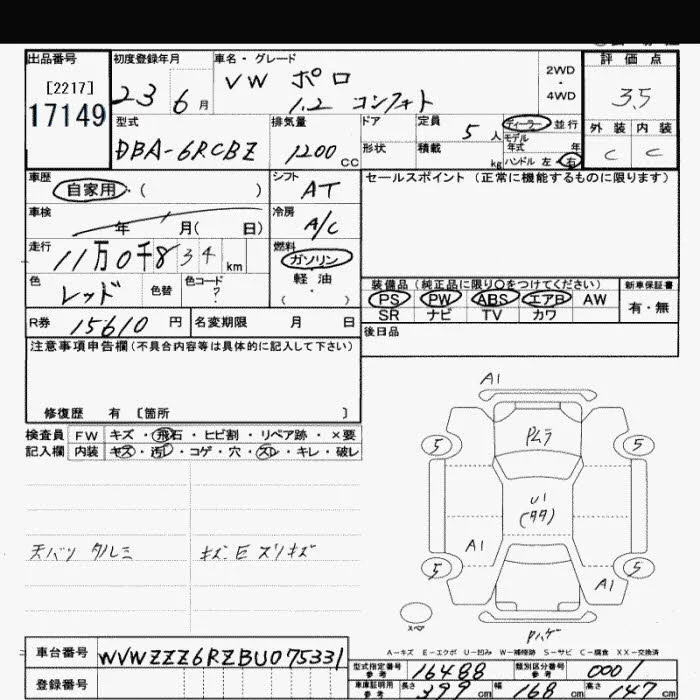 出品番号 初度登録年月 車名・グレード 2WD・4WD 評価点
[2217] 23 6月 VW ポロ 3.5
17149 1.2 コンフォト
型式 排気量 ドア 定員 5人 ディーラー 並行 外装 内装
DBA-6RCBZ 1200cc 形状 積載 kg モデル年式 年 C C
ハンドル 左・右
車歴 自家用・( ) シフト AT セールスポイント(正常に機能するものに限ります)
車検 年 月( 日) 冷房 A/C
走行 11万0千834km 燃料 ガソリン
色 レッド 色替 色コード ? 軽油 ( ・ )
装備品(純正品に限り○をつけてください) 新車保証書
PS PW ABS エアB AW 有・無
SR ナビ TV カワ
R券 15610円 名変期限 月 日 後日品
注意事項申告欄(不具合内容等は具体的に記入して下さい)
修復歴 有 〔箇所 〕
検査員 FW キズ・飛石・ヒビ割・リペア跡・×要
記入欄 内装 キズ・汚レ・コゲ・穴・スレ・キレ・破レ
天バリ タルミ キズ.E スリキズ
A1
5 Pムラ 5
U1
(タタ)
A1
5 A1 5
スペア Pハゲ
A-キズ E-エクボ U-凹み W-補修跡 S-サビ C-腐食 XX-交換済
車台番号 WVWZZZ6RZBU075331
登録番号
型式指定番号 参考 16488 類別区分番号 参考 0001
車庫証明用 参考 長さ 399cm 幅 168cm 高さ 147cm